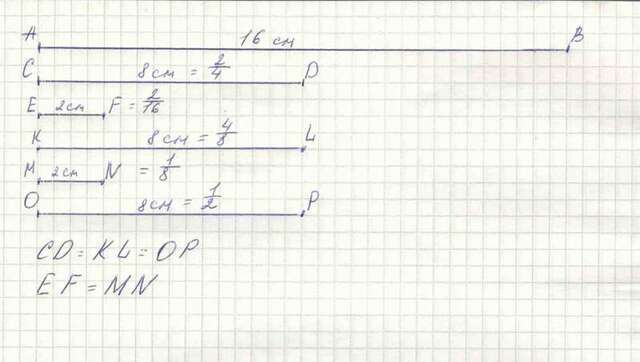 A 16 см B
C 8 см = 2/4 D
E 2 см F = 2/16
K 8 см = 4/8 L
M 2 см N = 1/8
O 8 см = 1/2 P
CD = KL = OP
EF = MN